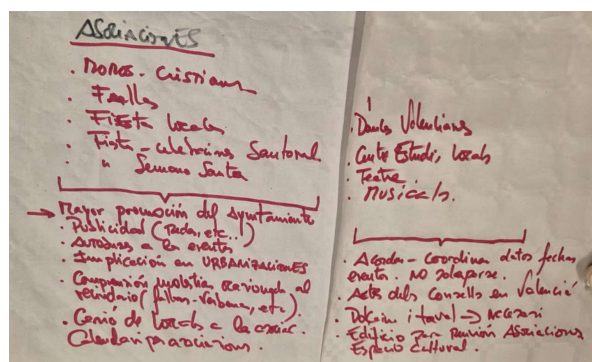 ASOCIACIONES
. MOROS - Cristianos
. Falles
. Fiesta Locales
. Fiesta - celebraciones Santoral
. " Semana Santa
→ Mayor promoción del Ayuntamiento
. Publicidad (Radio, etc...)
. Autobuses a los eventos
. Implicación en URBANIZACIONES
. Comprensión molestias al
vecindario (fallas - verbena, etc)
. Cesió de locals a les
Calendari pr asociacions.
. Danses Valencianes
. Estudis Locals
. Teatre
. Musicals.
. Agenda - coordinar datos fechas
eventos. NO solaparse.
. Actes dels Consells en Valencià
. Dolçaina i tabal → necesari
. Edificio para Reunión Asociaciones
Espacio Cultural.